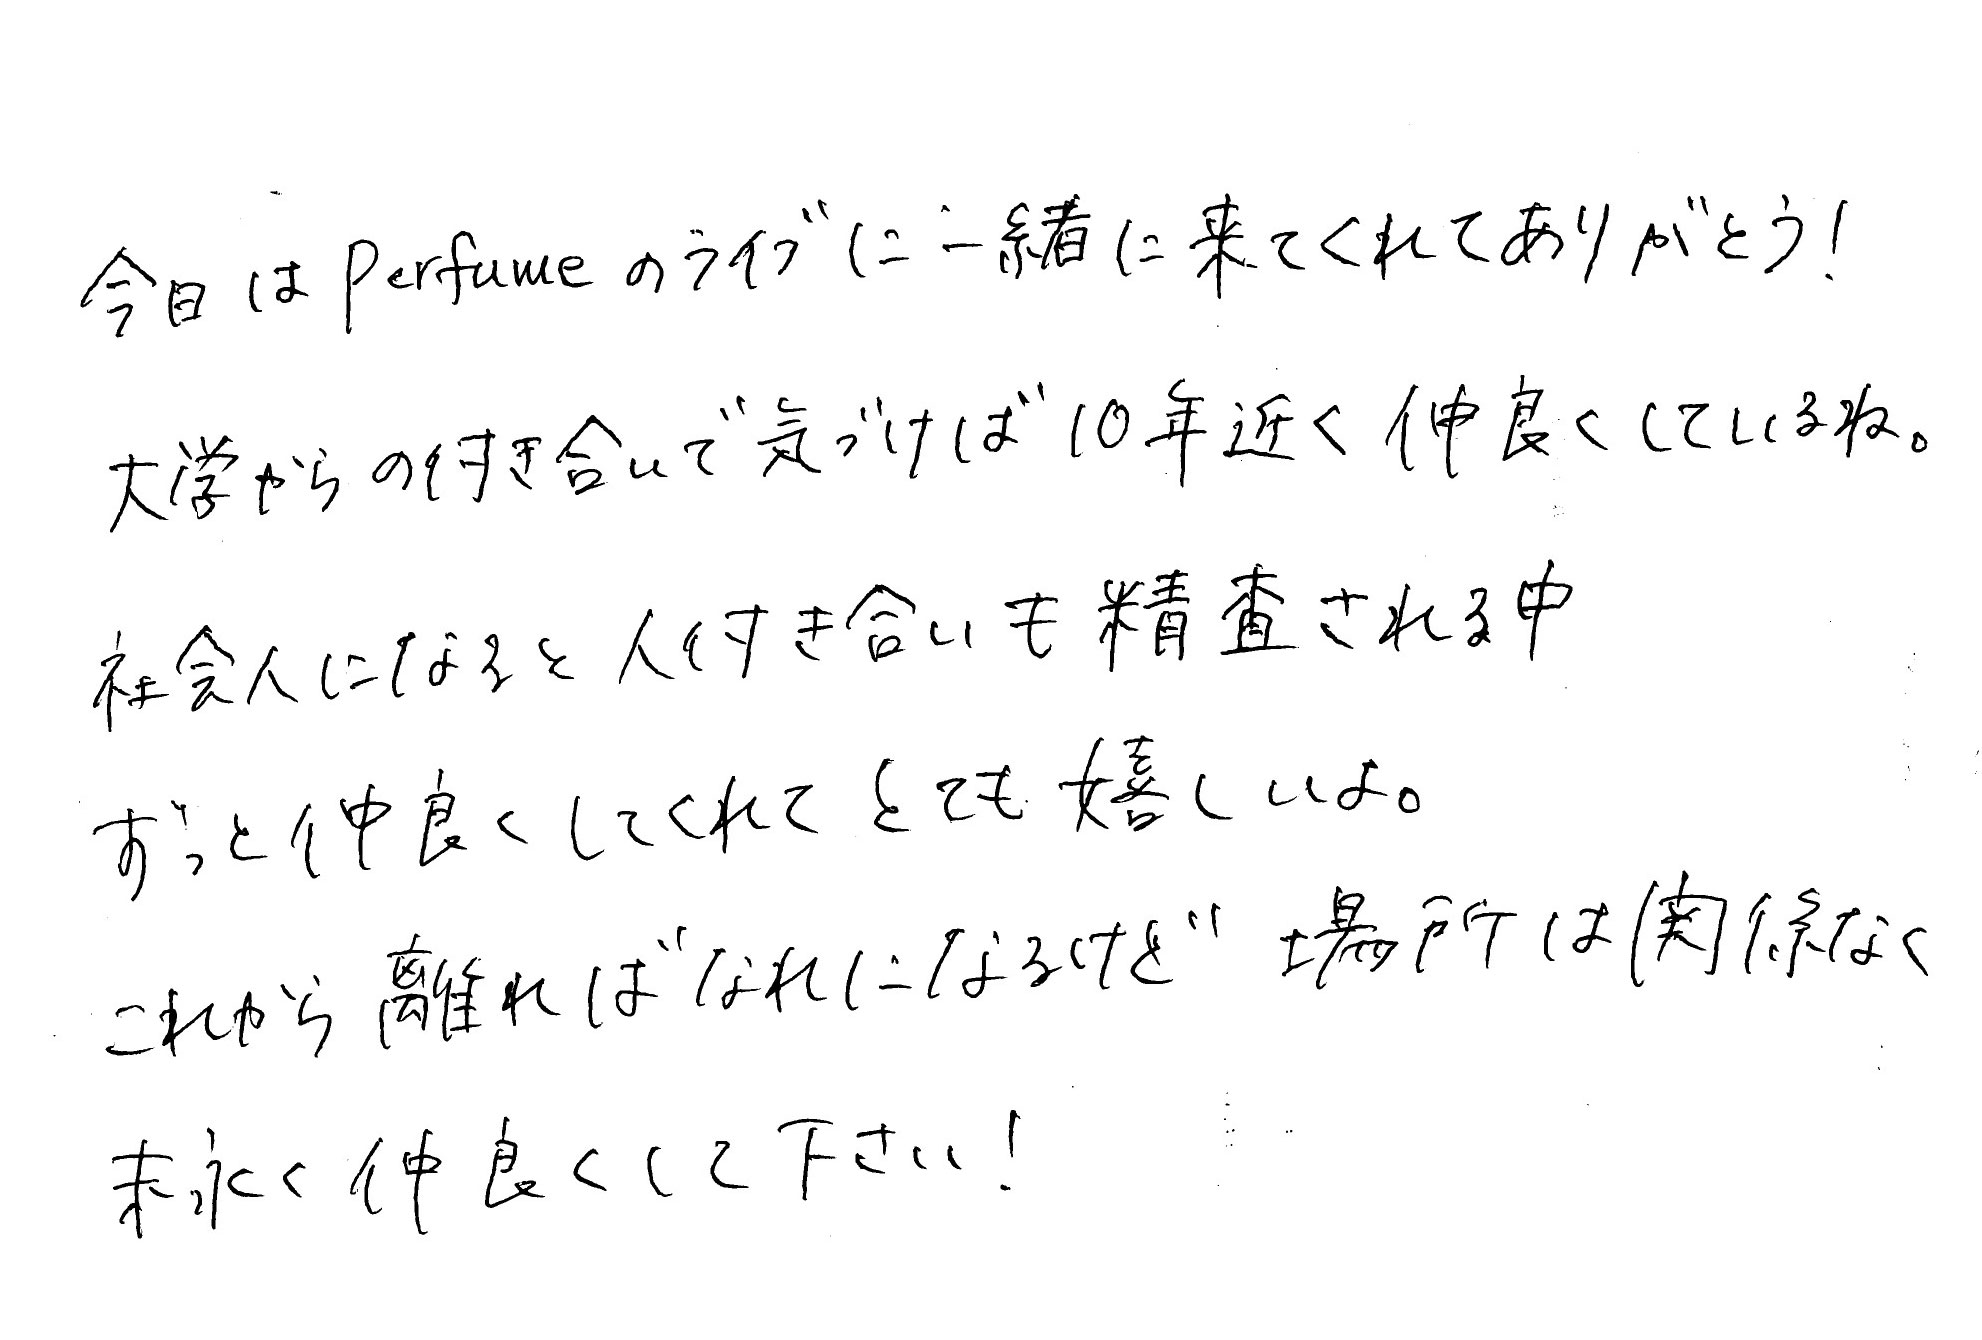 今日はPerfumeのライブに一緒に来てくれてありがとう!
大学からの付き合いで気づけば10年近く仲良くしているね。
社会人になると人付き合いも精査される中
ずっと仲良くしてくれてとても嬉しいよ。
これから離ればなれになるけど場所は関係なく
末永く仲良くして下さい!